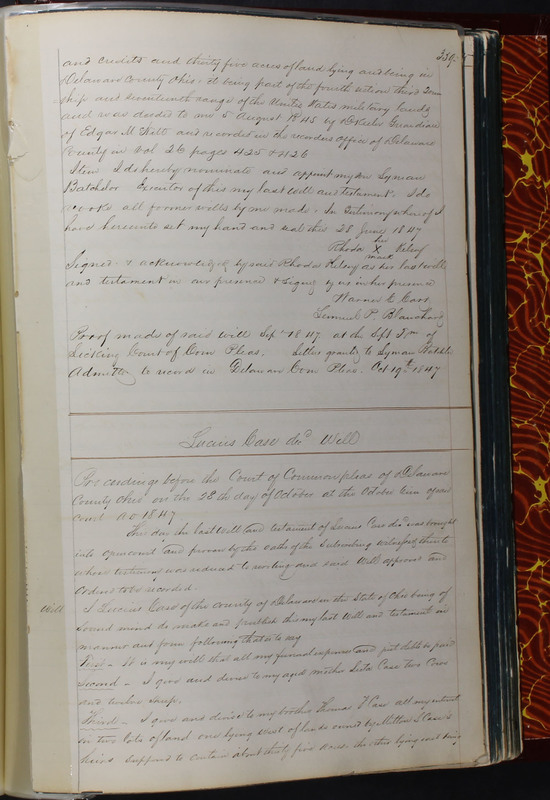 339
and credits and thirty five acres of land lying and being in
Delaware County Ohio, it being part of the fourth section third Town
ship and seventeenth range of the United States military lands
and was deeded to me 5 August 1845 by Guardian
of Edgar M and recorded in the recorders office of Delaware
County in Vol 26 pages 425 & 426
Item I do hereby nominate and appoint my son Lyman
Batchelor Executor of this my last will and testament. I do
revoke all former wills by me made. In testimony whereof I
have hereunto set my hand and seal this 28 June 1847
his
Rhoda X Kelsey
mark
Signed & acknowledged by said Rhoda Kelsey as her last will
and testament in our presence & signed by us in her presence
Warner C Carr
Lemuel P. Blanchard
Proof made of said will Sept 1847 at the Sept Term of
Licking Court of Com Pleas. Letters granted to Lyman Batchelor
Admitted to record in Delaware Com Pleas. Oct 19th 1847
Lucius Case decd Will
Proceedings before the Court of Common pleas of Delaware
County Ohio on the 28th day of October at the October term of said
court A D 1847
This day the last Will and testament of Lucius Case decd was brought
into open court and proven by the oaths of the Subscribing witnesses thereto
whose testimony was reduced to writing and said Will approved and
Ordered to be recorded.
Will
I Lucius Case of the county of Delaware in the State of Ohio being of
Sound mind do make and publish this my last Will and testament in
manner and form following that is to say
First - It is my will that all my funeral expenses and just debts be paid
Second - I give and devise to my aged mother Case two Cows
and twelve sheep.
Third - I give and devise to my brother Thomas Case all my interest
in two lots of land one lying west of lands owned by Case's
heirs supposed to contain about thirty five acres the other lying east being